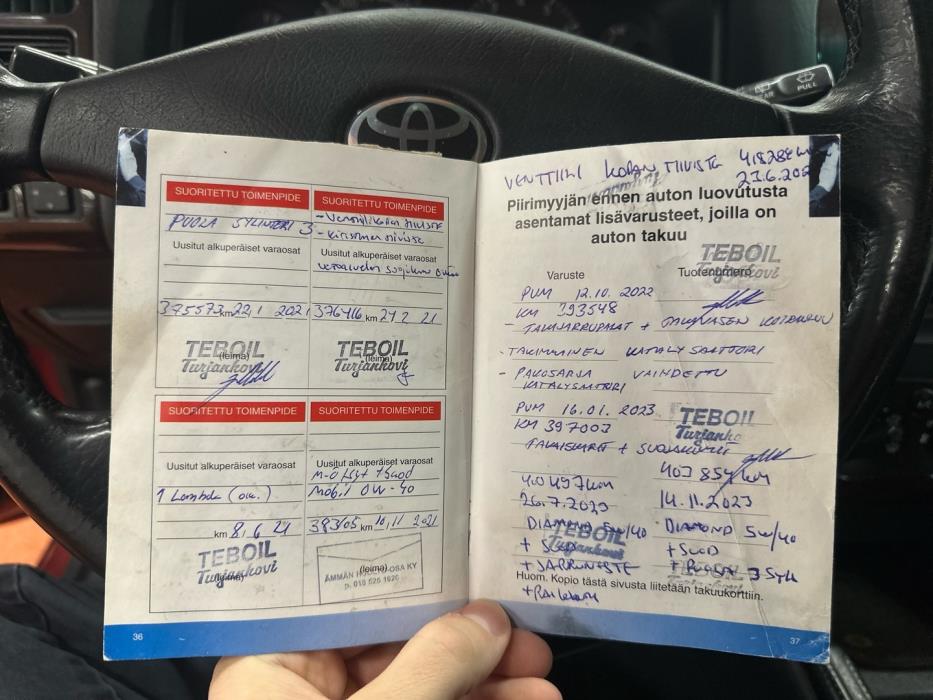 PULL
SUORITETTU TOIMENPIDE
PUOLA SYLINTERI 3
Uusitut alkuperäiset varaosat
375573 km 22.1 2021
(leima)
TEBOIL
Turjankovi
SUORITETTU TOIMENPIDE
- Kiristimen tiiviste
Uusitut alkuperäiset varaosat
376416 km 24 2 21
(leima)
TEBOIL
Turjankovi
SUORITETTU TOIMENPIDE
Uusitut alkuperäiset varaosat
1 Lambda (oik.)
km 8,6 21
TEBOIL
Turjankovi
SUORITETTU TOIMENPIDE
Uusitut alkuperäiset varaosat
M-öljyt + Suod
Mobil 0W-40
383105 km 16,11 2021
(leima)
ÄMMÄN
OSA KY
36
VENTTIILI KOPAN TIIVISTE 418284 km
23.6.202
Piirimyyjän ennen auton luovutusta
asentamat lisävarusteet, joilla on
auton takuu
TEBOIL
Turjankovi
Varuste Tuotenumero
PVM 12.10.2022
KM 393548
- TAKAJARRUPALAT +
- TAKIMMAINEN KATALYSAATTORI
- PAKOSARJA VAIHDETTU
KATALYSAATTORI
PVM 16.01.2023
TEBOIL
KM 397003
TAKAISKARIT +
403 854 km
26.7.2023
14.11.2023
DIAMOND 5W/40
DIAMOND 5W/40
TEBOIL
Turjankovi
+ SUOD
+ SUOD
+ JARRUNESTE
+ PUOLA 3 Syl
TEBOIL
Huom. Kopio tästä sivusta liitetään takuukorttiin.
37